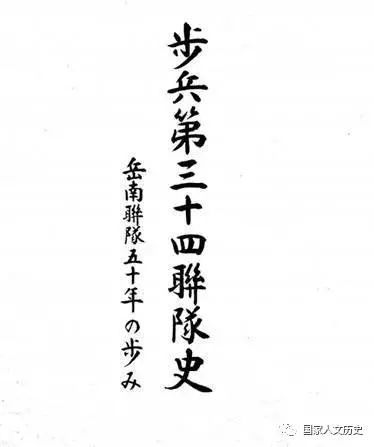 歩兵第三十四聯隊史
岳南聯隊五十年の歩み
国家人文历史